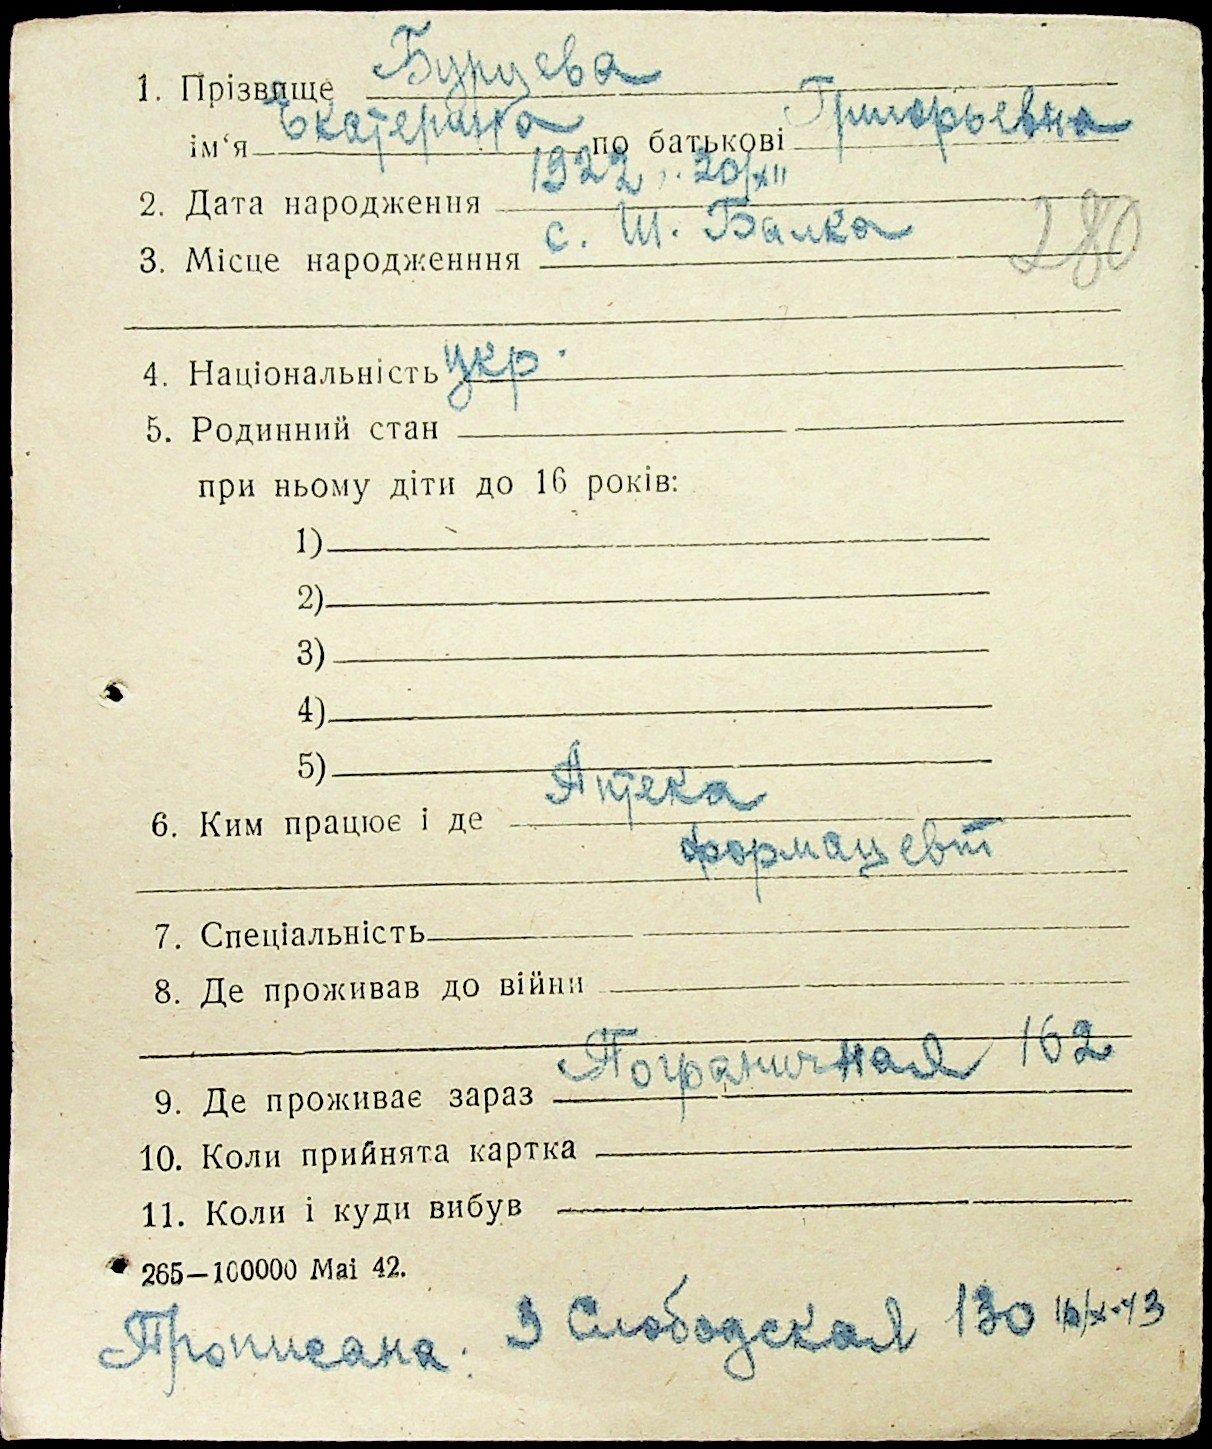 1. Прізвище Бурцева
ім‘я Екатерина по батькові Григорьевна
2. Дата народження 1922, 20/XII
3. Місце народженння с. Ш. Балка
280
4. Національність укр.
5. Родинний стан
при ньому діти до 16 років:
1)
2)
3)
4)
5)
6. Ким працює і де Аптека
формацевт
7. Спеціальність
8. Де проживав до війни
9. Де проживає зараз Пограничная 162
10. Коли прийнята картка
11. Коли і куди вибув
265—100000 Маі 42.
Прописана. 3 Слободская 130